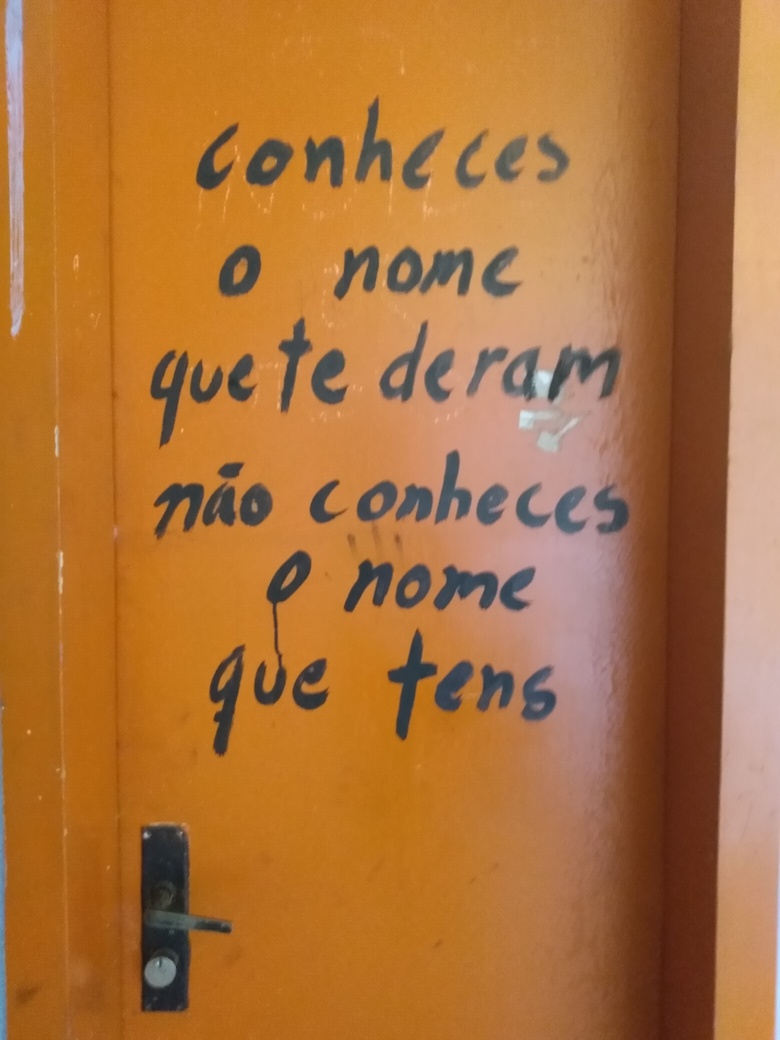 conheces
o nome
que te deram
não conheces
o nome
que tens